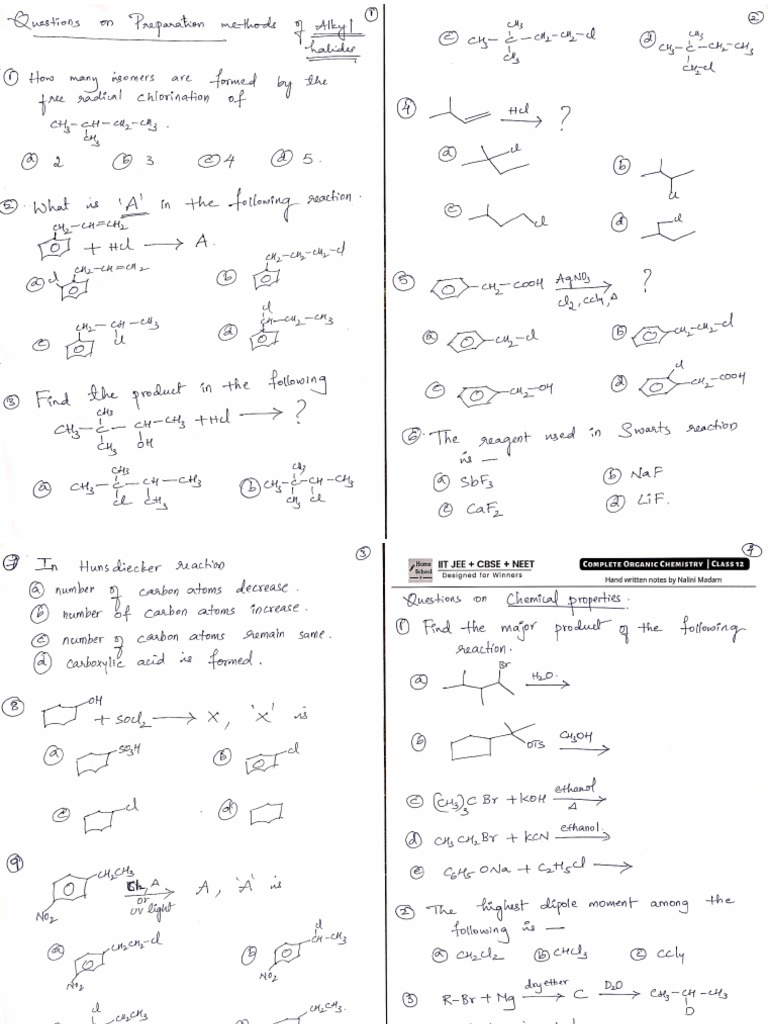 Questions on Preparation methods of Alkyl halides
①
① How many isomers are formed by the
free radical chlorination of
CH₃-CH-CH₂-CH₃.
CH₃
ⓐ 2 ⓑ 3 ⓒ 4 ⓓ 5.
② What is 'A' in the following reaction.
CH₂-CH=CH₂
+ HCl → A.
ⓐ Cl CH₂-CH=CH₂ ⓑ CH₂-CH₂-CH₂-Cl
ⓒ CH₂-CH-CH₃ ⓓ Cl
Cl CH-CH₂-CH₃
③ Find the product in the following
CH₃
CH₃-C-CH-CH₃ + HCl → ?
CH₃ OH
ⓐ CH₃ ⓑ CH₃
CH₃-C-CH-CH₃ CH₃-C-CH-CH₃
Cl CH₃ CH₃ Cl
②
ⓒ CH₃ ⓓ CH₃
CH₃-C-CH₂-CH₂-Cl CH₃-C-CH₂-CH₃
CH₃ CH₂Cl
④ HCl → ?
ⓐ Cl ⓑ Cl
ⓒ Cl ⓓ Cl
⑤ CH₂-COOH AgNO₃ ?
Cl₂, CCl₄, Δ
ⓐ CH₂-Cl ⓑ CH₂-CH₂-Cl
ⓒ CH₂-OH ⓓ Cl CH₂-COOH
⑥ The reagent used in Swarts reaction
is —
ⓐ SbF₃ ⓑ NaF
ⓒ CaF₂ ⓓ LiF.
③
⑦ In Hunsdiecker reaction
ⓐ number of carbon atoms decrease.
ⓑ number of carbon atoms increase.
ⓒ number of carbon atoms remain same.
ⓓ carboxylic acid is formed.
⑧ OH
+ SOCl₂ → X, 'X' is
ⓐ SO₃H ⓑ Cl
ⓒ Cl ⓓ
⑨ CH₂CH₃
NO₂ Δ or UV light → A, 'A' is
ⓐ CH₂CH₂-Cl ⓑ Cl
NO₂ CH-CH₃
NO₂
Cl CH₂CH₃ CH₂CH₃.
④
Home School
IIT JEE + CBSE + NEET
Designed for Winners
COMPLETE ORGANIC CHEMISTRY | CLASS 12
Hand written notes by Nalini Madam
Questions on Chemical properties.
① Find the major product of the following
reaction.
ⓐ Br H₂O. →
ⓑ OTS CH₃OH →
ⓒ (CH₃)₃C Br + KOH ethanol Δ →
ⓓ CH₃CH₂Br + KCN ethanol. →
ⓔ C₆H₅ONa + C₂H₅Cl →
② The highest dipole moment among the
following is —
ⓐ CH₂Cl₂ ⓑ CHCl₃ ⓒ CCl₄
③ R-Br + Mg dry ether → C D₂O → CH₃-CH-CH₃
D